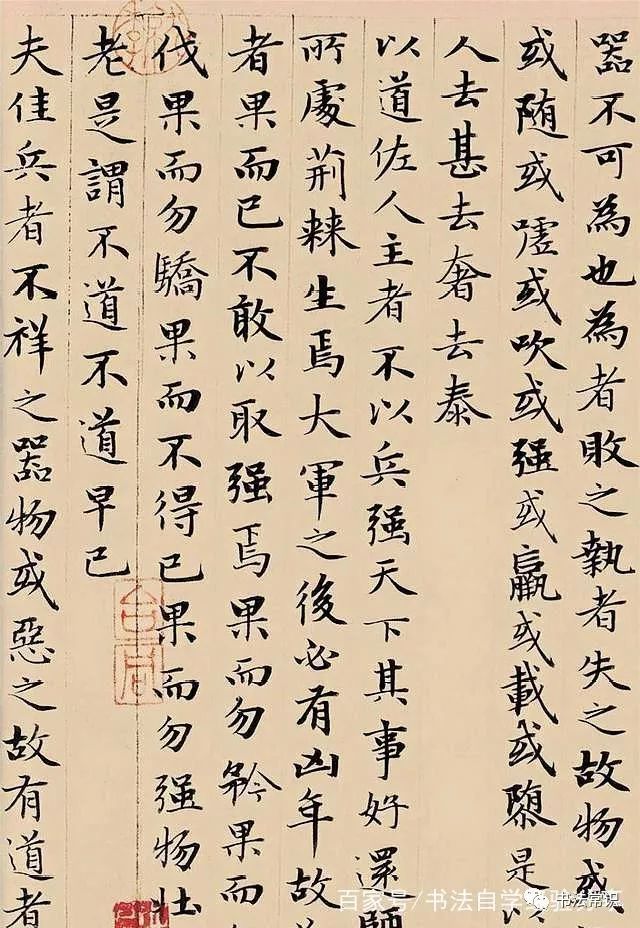 器不可為也為者敗之執者失之故物或
或随或嘘或吹或强或羸或載或隳是以
人去甚去奢去泰
以道佐人主者不以兵强天下其事好還師
所處荊棘生焉大軍之後必有凶年故
者果而已不敢以取强焉果而勿矜果而
伐果而勿驕果而不得已果而勿强物壮
老是謂不道不道早已
夫佳兵者不祥之器物或惡之故有道者
百家号/书法自学经验
书法常识